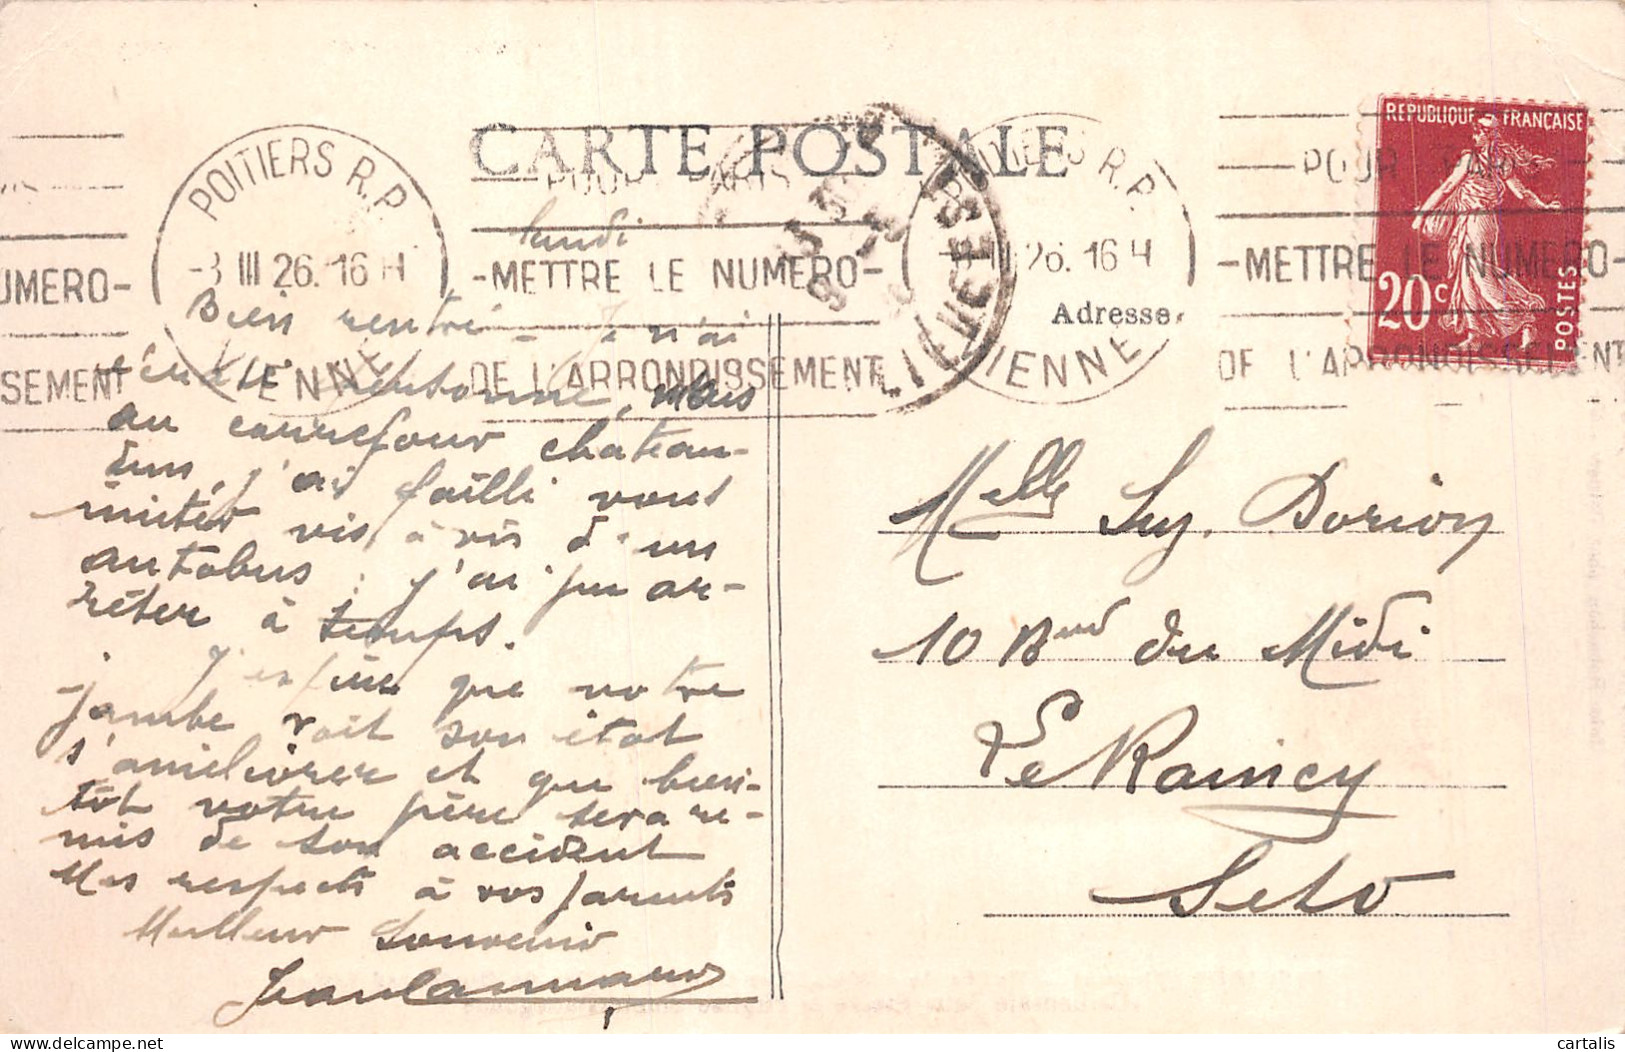 CARTE POSTALE
POITIERS R.P.
-8 III 26. 16 H
VIENNE
POUR PARIS
-METTRE LE NUMERO-
DE L'ARRONDISSEMENT
POITIERS R.P.
26. 16 H
VIENNE
POUR PARIS
-METTRE LE NUMERO-
DE L'ARRONDISSEMENT
UMERO-
SSEMENT
REPUBLIQUE FRANÇAISE
20c
POSTES
lundi
Bien rentré - Je n'ai
mais
au carrefour chateau-
dun, j'ai failli vous
imiter vis à vis d'un
autobus; j'ai pu ar-
rêter à temps.
J'espère que votre
jambe voit son état
s'améliorer et que bien-
tôt votre père sera re-
mis de son accident
Mes respects à vos parents
Meilleur souvenir
Adresse
Melle Suz. Dorion
10 Bard du Midi
Le Raincy
Seto
cartalis